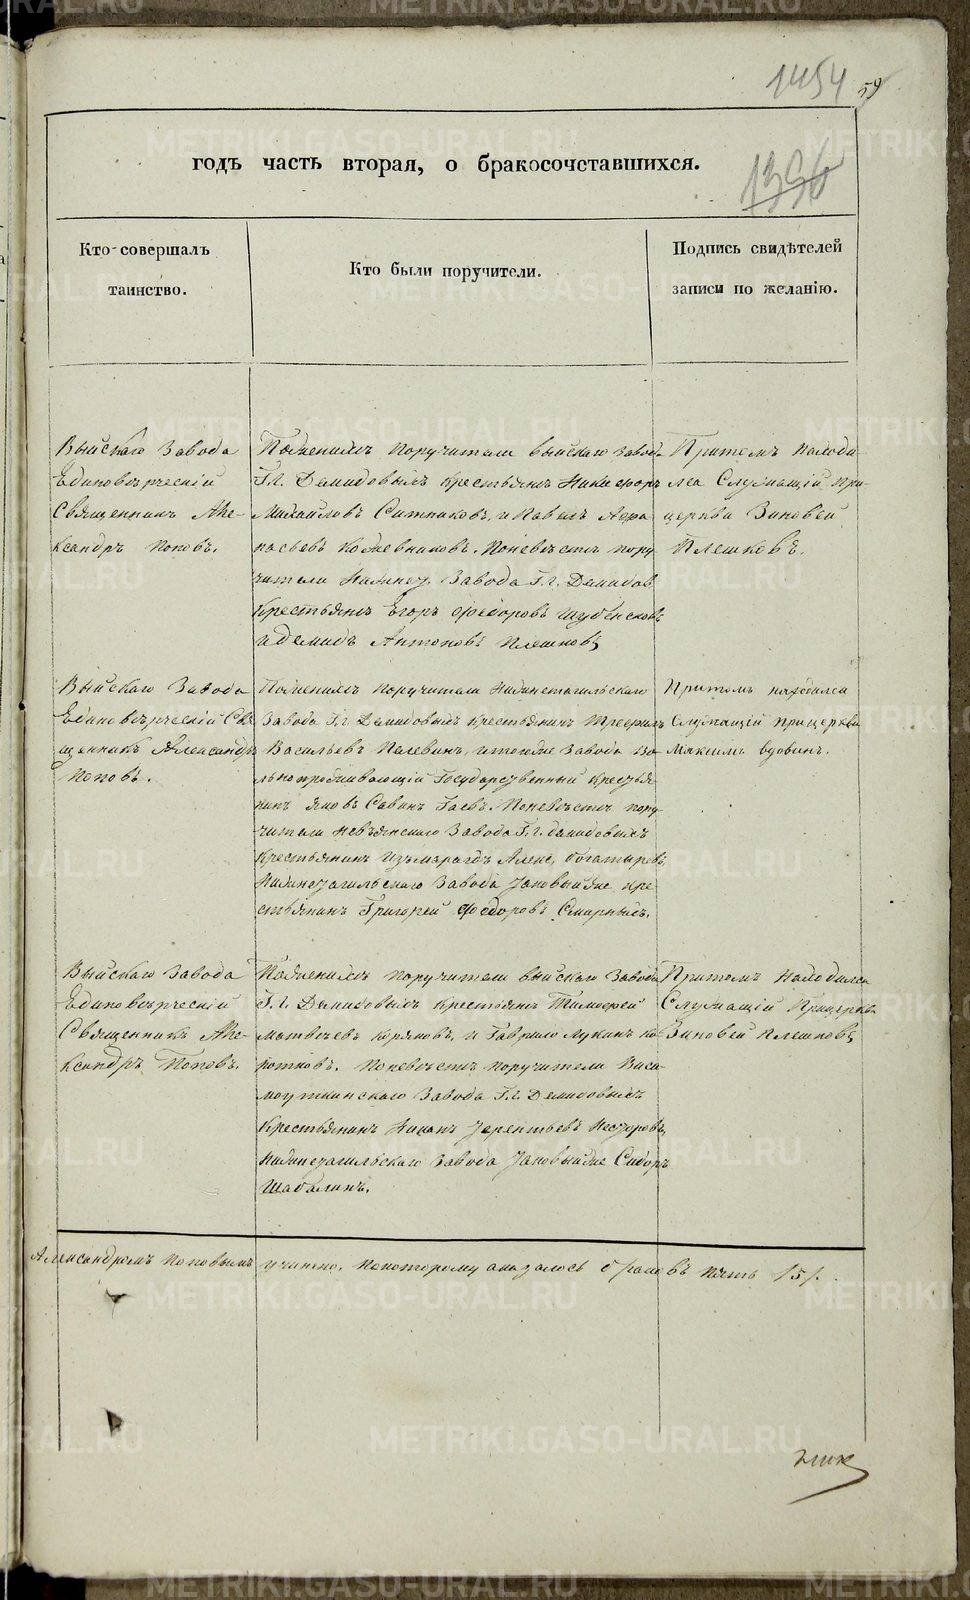 1454 59
годъ часть вторая, о бракосочетавшихся.
1396
Кто совершалъ
таинство.
Кто были поручители.
Подпись свидѣтелей
записи по желанію.
Выйскаго Завода
Единовѣрческій
Священникъ Але-
ксандръ Поповъ.
Поженихѣ поручители Выйскаго Завода
Г.г. Демидовыхъ крестьянъ Никифоръ
Михайловъ Ситниковъ, и Павелъ Афа
насьевъ Кожевниковъ. Поневѣстѣ пору
чители Завода Г.г. Демидов
крестьянъ Егоръ Ѳедоровъ
и Демидъ Антоновъ Плешковъ
Притомъ находи
лса Служащій при
церкви Зиновей
Плешковъ.
Выйскаго Завода
Единовѣрческій Свя
щенникъ Александръ
Поповъ.
Поженихѣ поручители Нижнетагильскаго
Завода Г.г. Демидовыхъ крестьянинъ Трефилъ
Васильевъ Палевинъ, итогоже Завода во
льнопроживающій Государственный крестья
нинъ Яковъ Савинъ Гаевъ. Поневѣстѣ пору
чители Невьянскаго Завода Г.г. Демидовыхъ
крестьянинъ Изъмарагдъ Алекс. Богатыревъ,
Нижнетагильскаго Завода Таковыйже кре
стьянинъ Григорей Ѳедоровъ Смирныхъ.
Притомъ находилса
Служащій прицеркви
Максимъ Вдовинъ.
Выйскаго Завода
Единовѣрческій
Священникъ Але-
ксандръ Поповъ.
Поженихѣ поручители Выйскаго Завода
Г.г. Демидовыхъ крестьянъ Тимофей
Матвѣевъ Коряковъ, и Гаврило Лукинъ Ко
ротковъ. Поневѣстѣ поручители Виси
моуткинскаго Завода Г.г. Демидовыхъ
крестьянинъ Иванъ Терентьевъ Несторовъ,
Нижнетагильскаго Завода Таковыйже Сидоръ
Шабалинъ.
Притомъ находилса
Служащій Прицеркви
Зиновей Плешковъ
Александромъ Поповымъ учинено, покоторому оказалось браковъ пять /5/.
METRIKI.GASO-URAL.RU